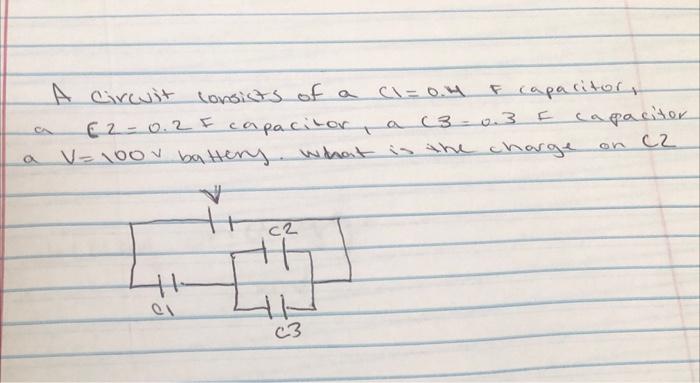 A circuit consists of a C1=0.4 F capacitor,
a C2=0.2 F capacitor, a C3=0.3 F capacitor
a V=100v battery. What is the charge on C2
V
C2
C1
C3